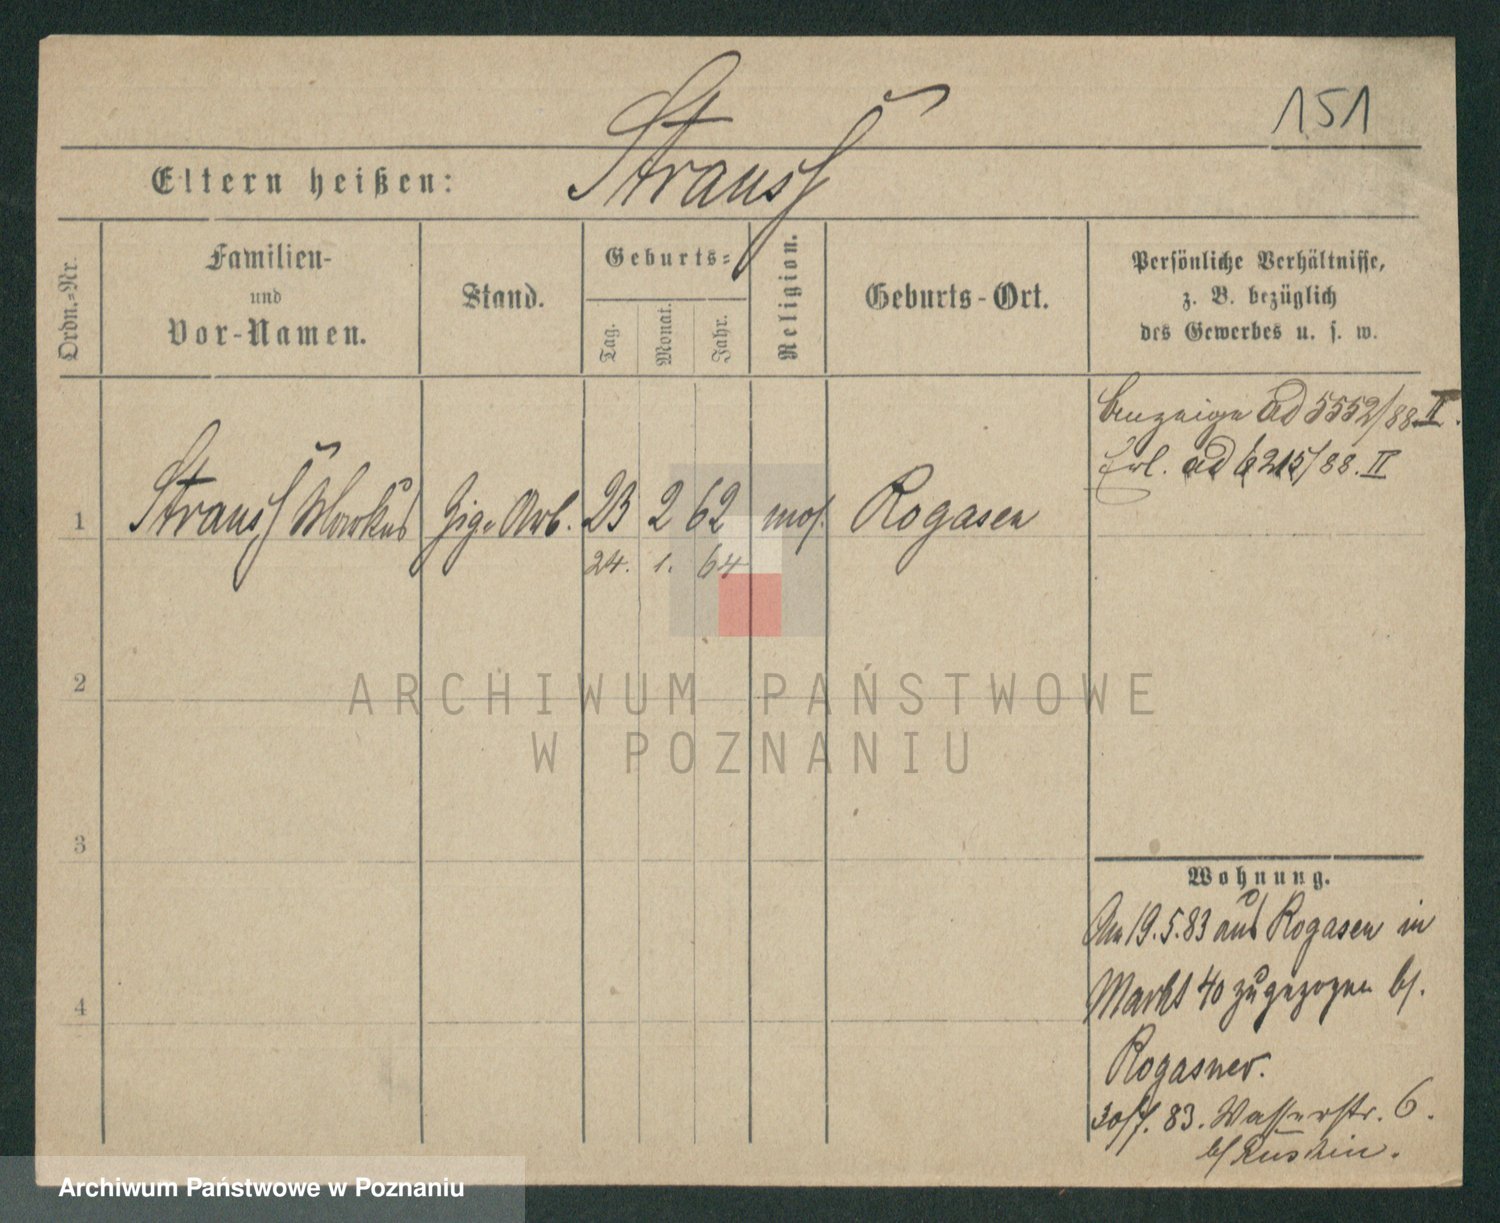 151
Strauss
Eltern heißen:
Ordn.-Nr.
Familien-
und
Vor-Namen.
Stand.
Geburts-
Tag.
Monat.
Jahr.
Religion.
Geburts-Ort.
Persönliche Verhältnisse,
z. B. bezüglich
des Gewerbes u. s. w.
ad 5552/88. II.
Erl. ad 6215/88. II
1 Strauss Markus Zig. Arb. 23 2 62 mos. Rogasen
24. 1. 64
2
ARCHIWUM PAŃSTWOWE
W POZNANIU
3
Wohnung.
Am 19.5.83 aus Rogasen in
Markt 40 zugezogen bf.
4
Rogasner.
30/7. 83. Wasserstr. 6.
bf
Archiwum Państwowe w Poznaniu